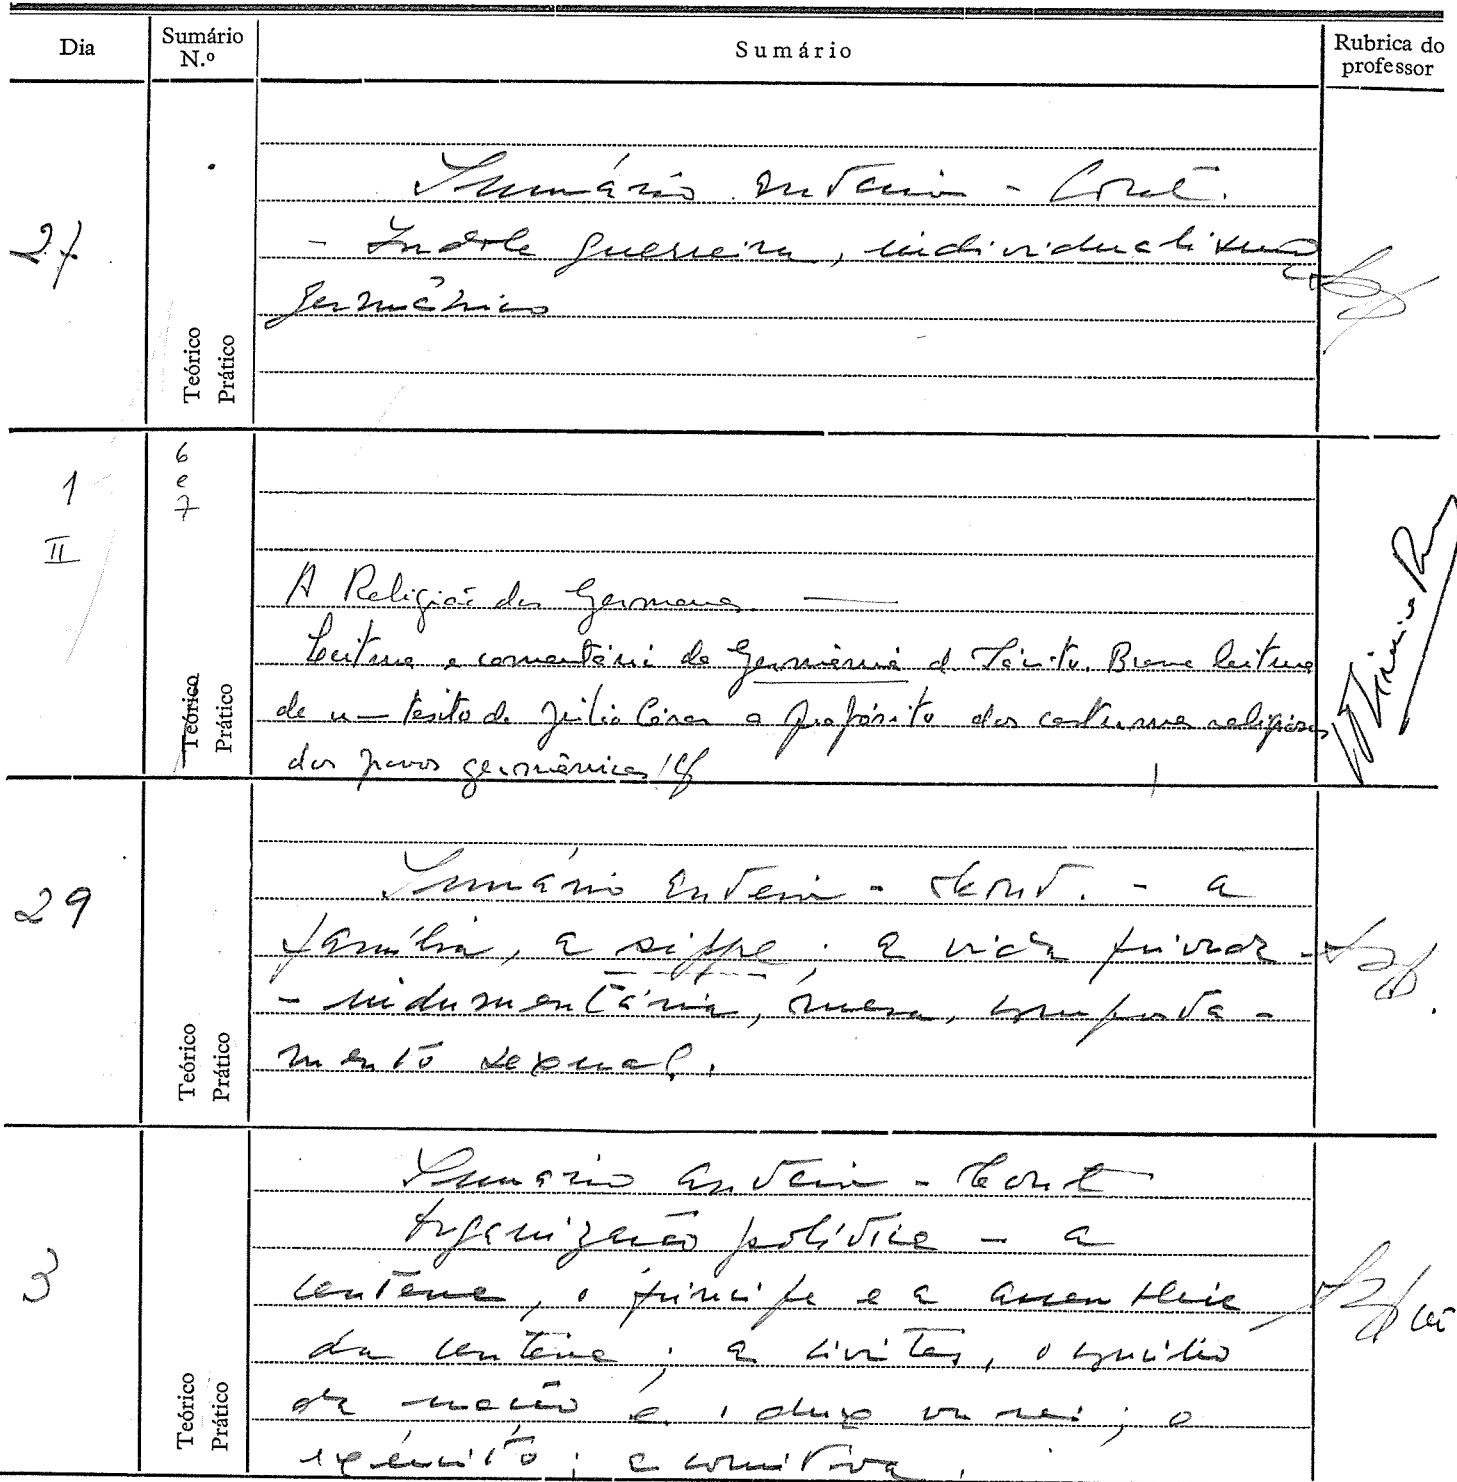 Dia
Sumário N.º
Sumário
Rubrica do professor
27
Sumário anterior - Cont.
- Indole guerreira, individualismo
germânico
Teórico
Prático
1
II
6
e
7
A Religião dos Germanos. —
Leitura e comentário da Germânia de Tácito. Breve leitura
de um texto de Júlio César a propósito dos costumes religiosos
dos povos germânicos
Teórico
Prático
29
Sumário anterior - Cont. - a
família, a sippe; a vida privada -
- indumentária, mesa, comporta-
mento sexual.
Teórico
Prático
3
Sumário anterior - Cont
Organização política - a
centena, o príncipe e a assembleia
da centena; a civitas, o concílio
da nação e o dux ou rei; o
exército; a comitiva.
Teórico
Prático